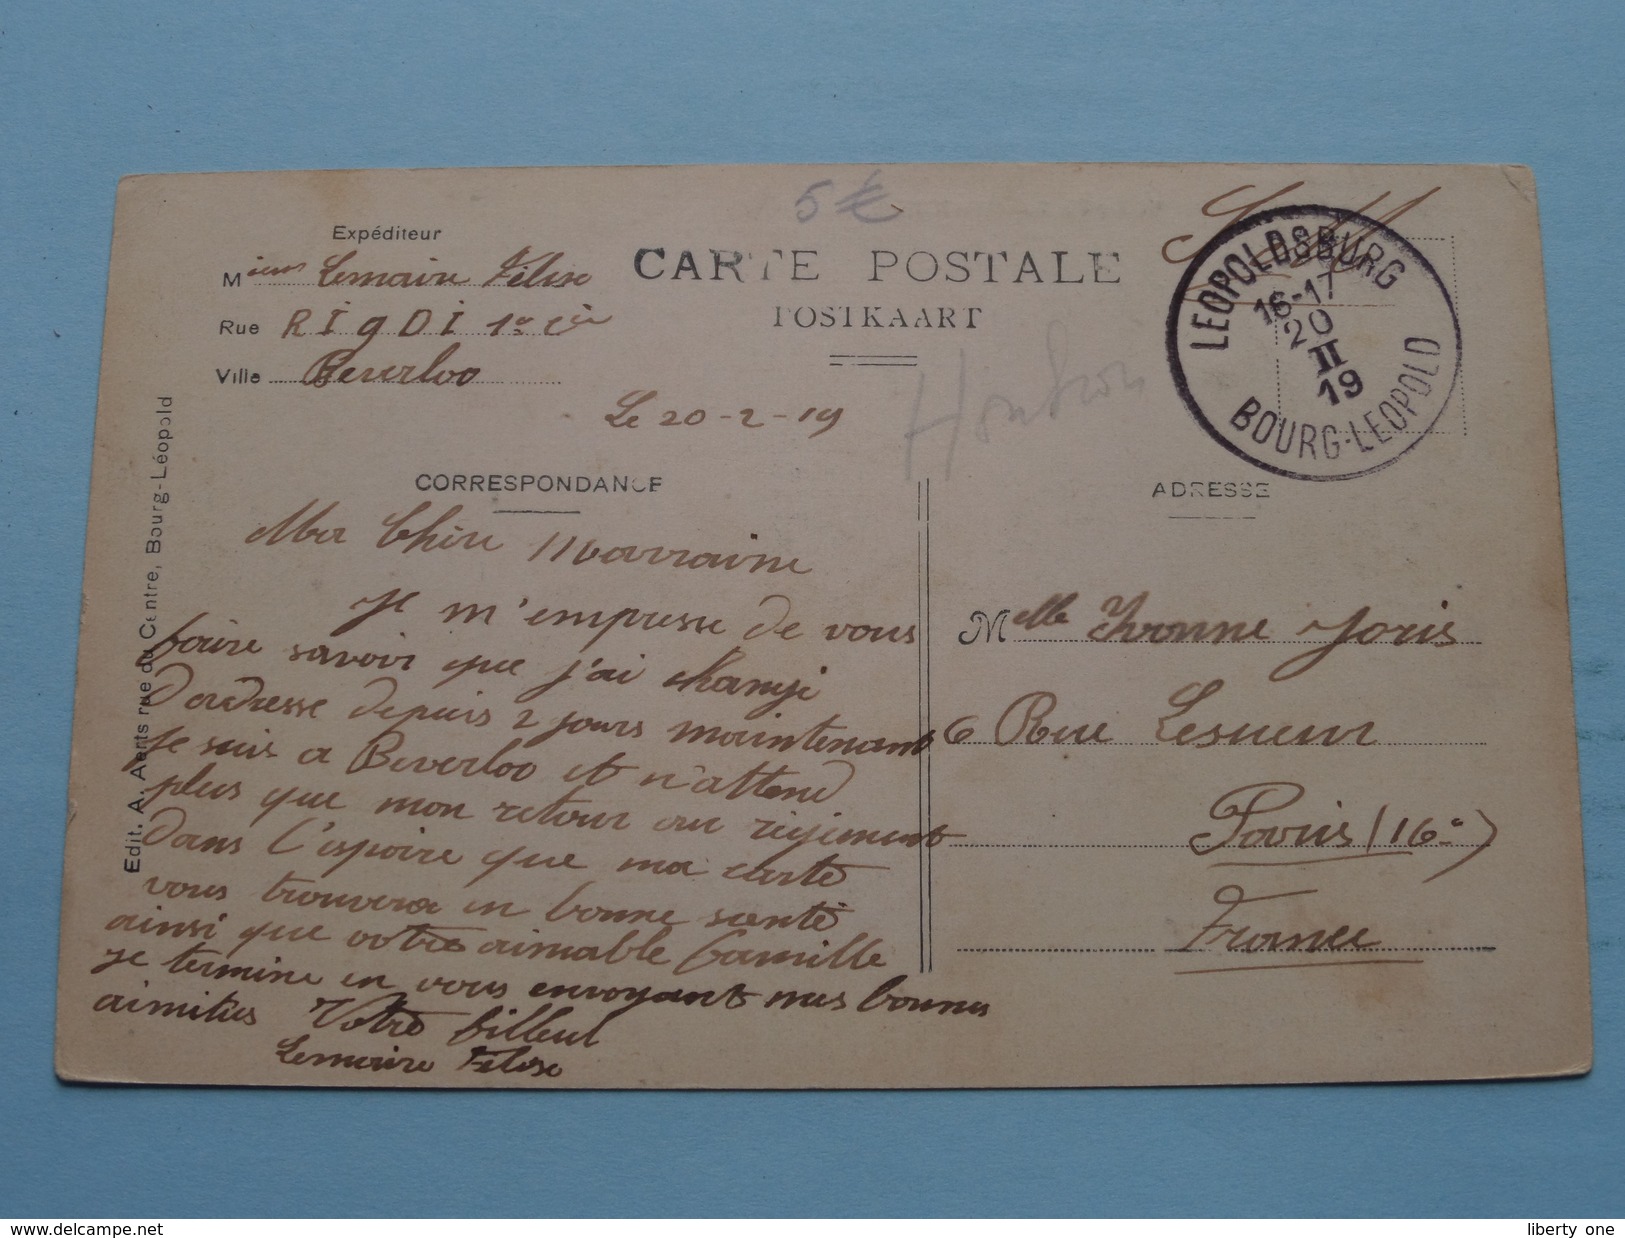 5 €
Expéditeur
Mieur Lemaire Félise
Rue RIgDI 1e Cie
Ville Beverloo
CARTE POSTALE
POSTKAART
S.M.
LEOPOLDSBURG
16-17
20
II
19
BOURG-LEOPOLD
Le 20-2-19
CORRESPONDANCE
ADRESSE
Edit. A. Aerts rue du Centre, Bourg-Léopold
Ma Chère Marraine
Je m'empresse de vous
faire savoir que j'ai changé
d'addresse depuis 2 jours maintenant
je suis a Beverloo et n'attend
plus que mon retour au régiment
dans l'espoire que ma carte
vous trouvera en bonne santé
ainsi que votre aimable famille
je termine en vous envoyant mes bonnes
aimitiés Votre filleul
Lemaire Félise
Melle Yvonne Joris
6 Rue Lesueur
Paris (16e)
France
liberty one
www.delcampe.net